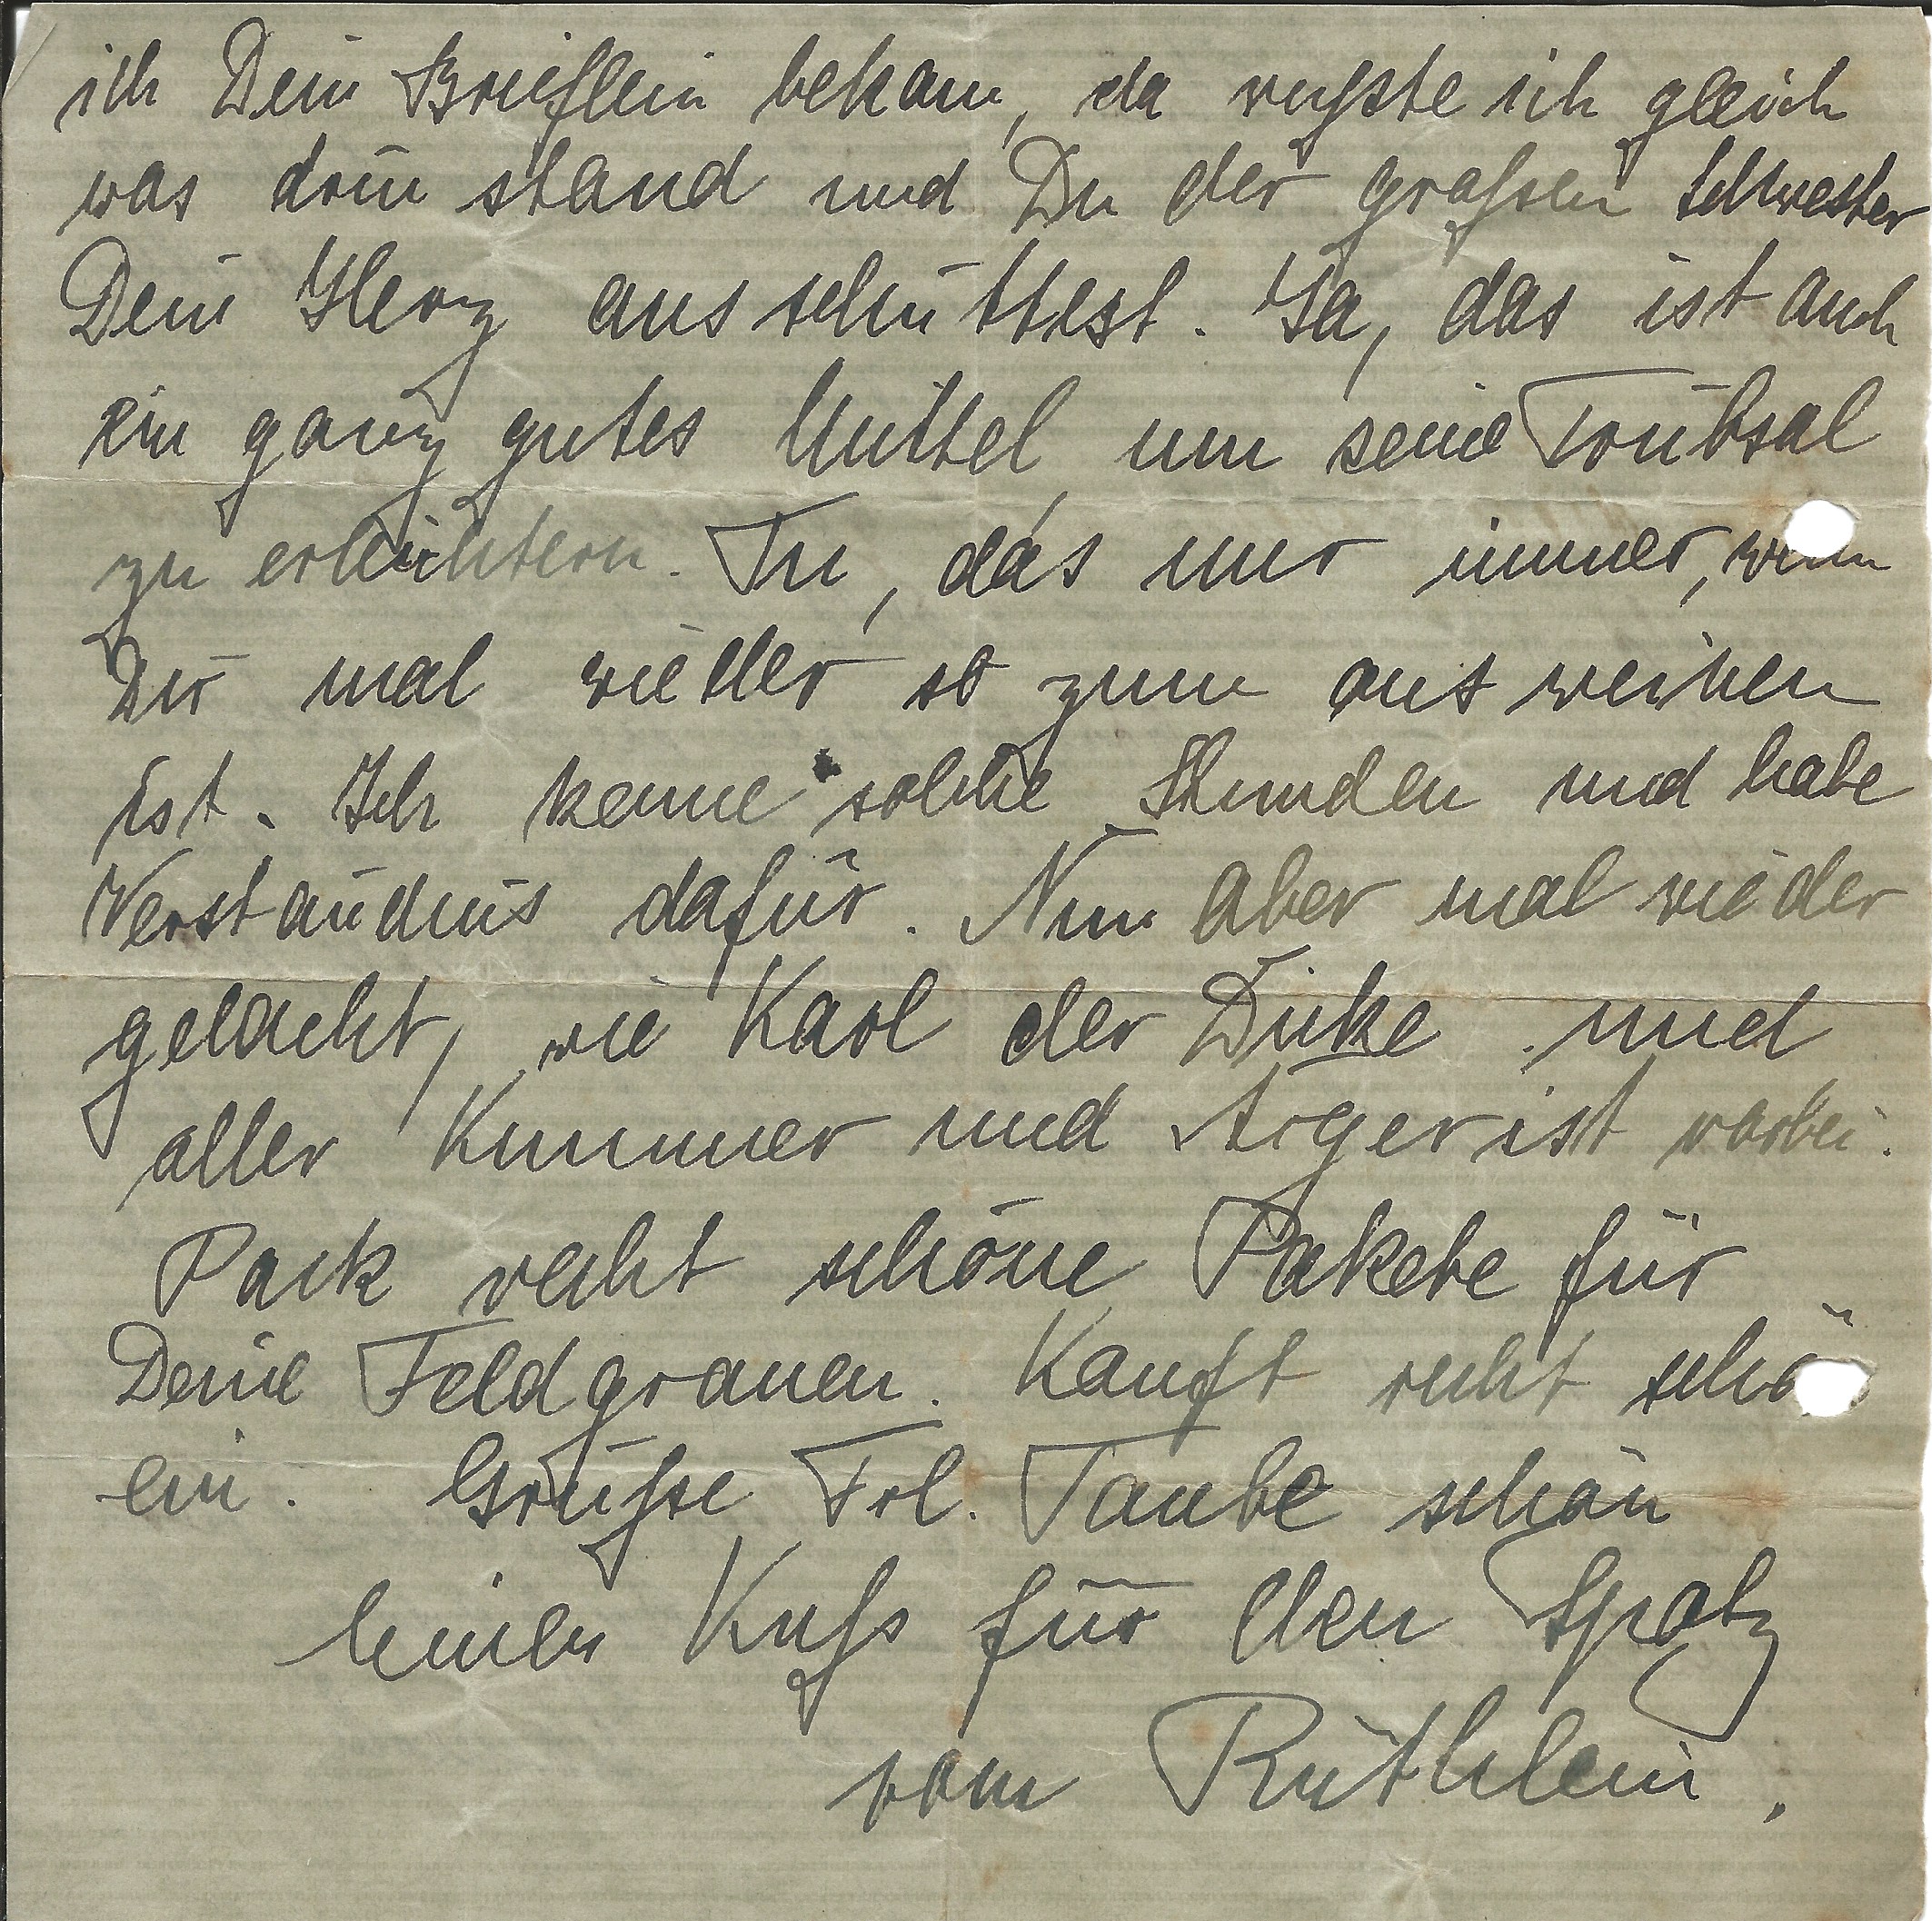 ich Dein Brieflein bekam, da wußste ich gleich
was drin stand und Du der großsen Schwester
Dein Herz ausschüttest. Ja, das ist auch
ein ganz gutes Mittel, um seine Trübsal
zu erleichtern. Tu, das nur immer, wenn
Dir mal wieder so zum ausweichen
ist. Ich kenne solche Stunden und habe
Verständnis dafür. Nun aber mal wieder
gelacht, wie Karl der Dicke und
aller Kummer und Ärger ist vorbei.
Pack recht schöne Pakete für
Deine Feldgrauen. Kauft recht schön
ein. Grüßse Frl. Taube schön
Einen Kuß für den Spatz
vom Rüthlein.